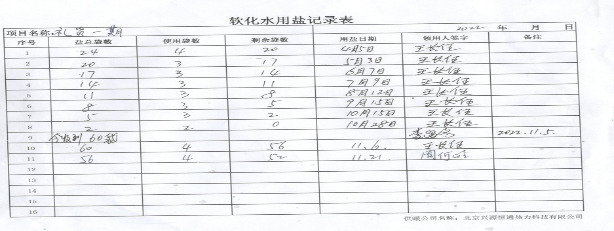 软化水用盐记录表
项目名称: 礼贤一期 2022 年 月 日
序号 盐总袋数 使用袋数 剩余袋数 用盐日期 领用人签字 备注
1 24 4 20 4月5日 王长住
2 20 3 17 5月3日 王长住
3 17 3 14 6月7日 王长住
4 14 3 11 7月9日 王长住
5 11 3 8 8月12日 王长住
6 8 3 5 9月15日 王长住
7 5 3 2 10月15日 王长住
8 2 2 0 10月28日 王长住
9 今收到60袋 2022.11.5.
10 60 4 56 11.6. 王长住
11 56 4 52 11.21.
12
13
14
15
16
供暖公司名称: 北京兴源恒通热力科技有限公司